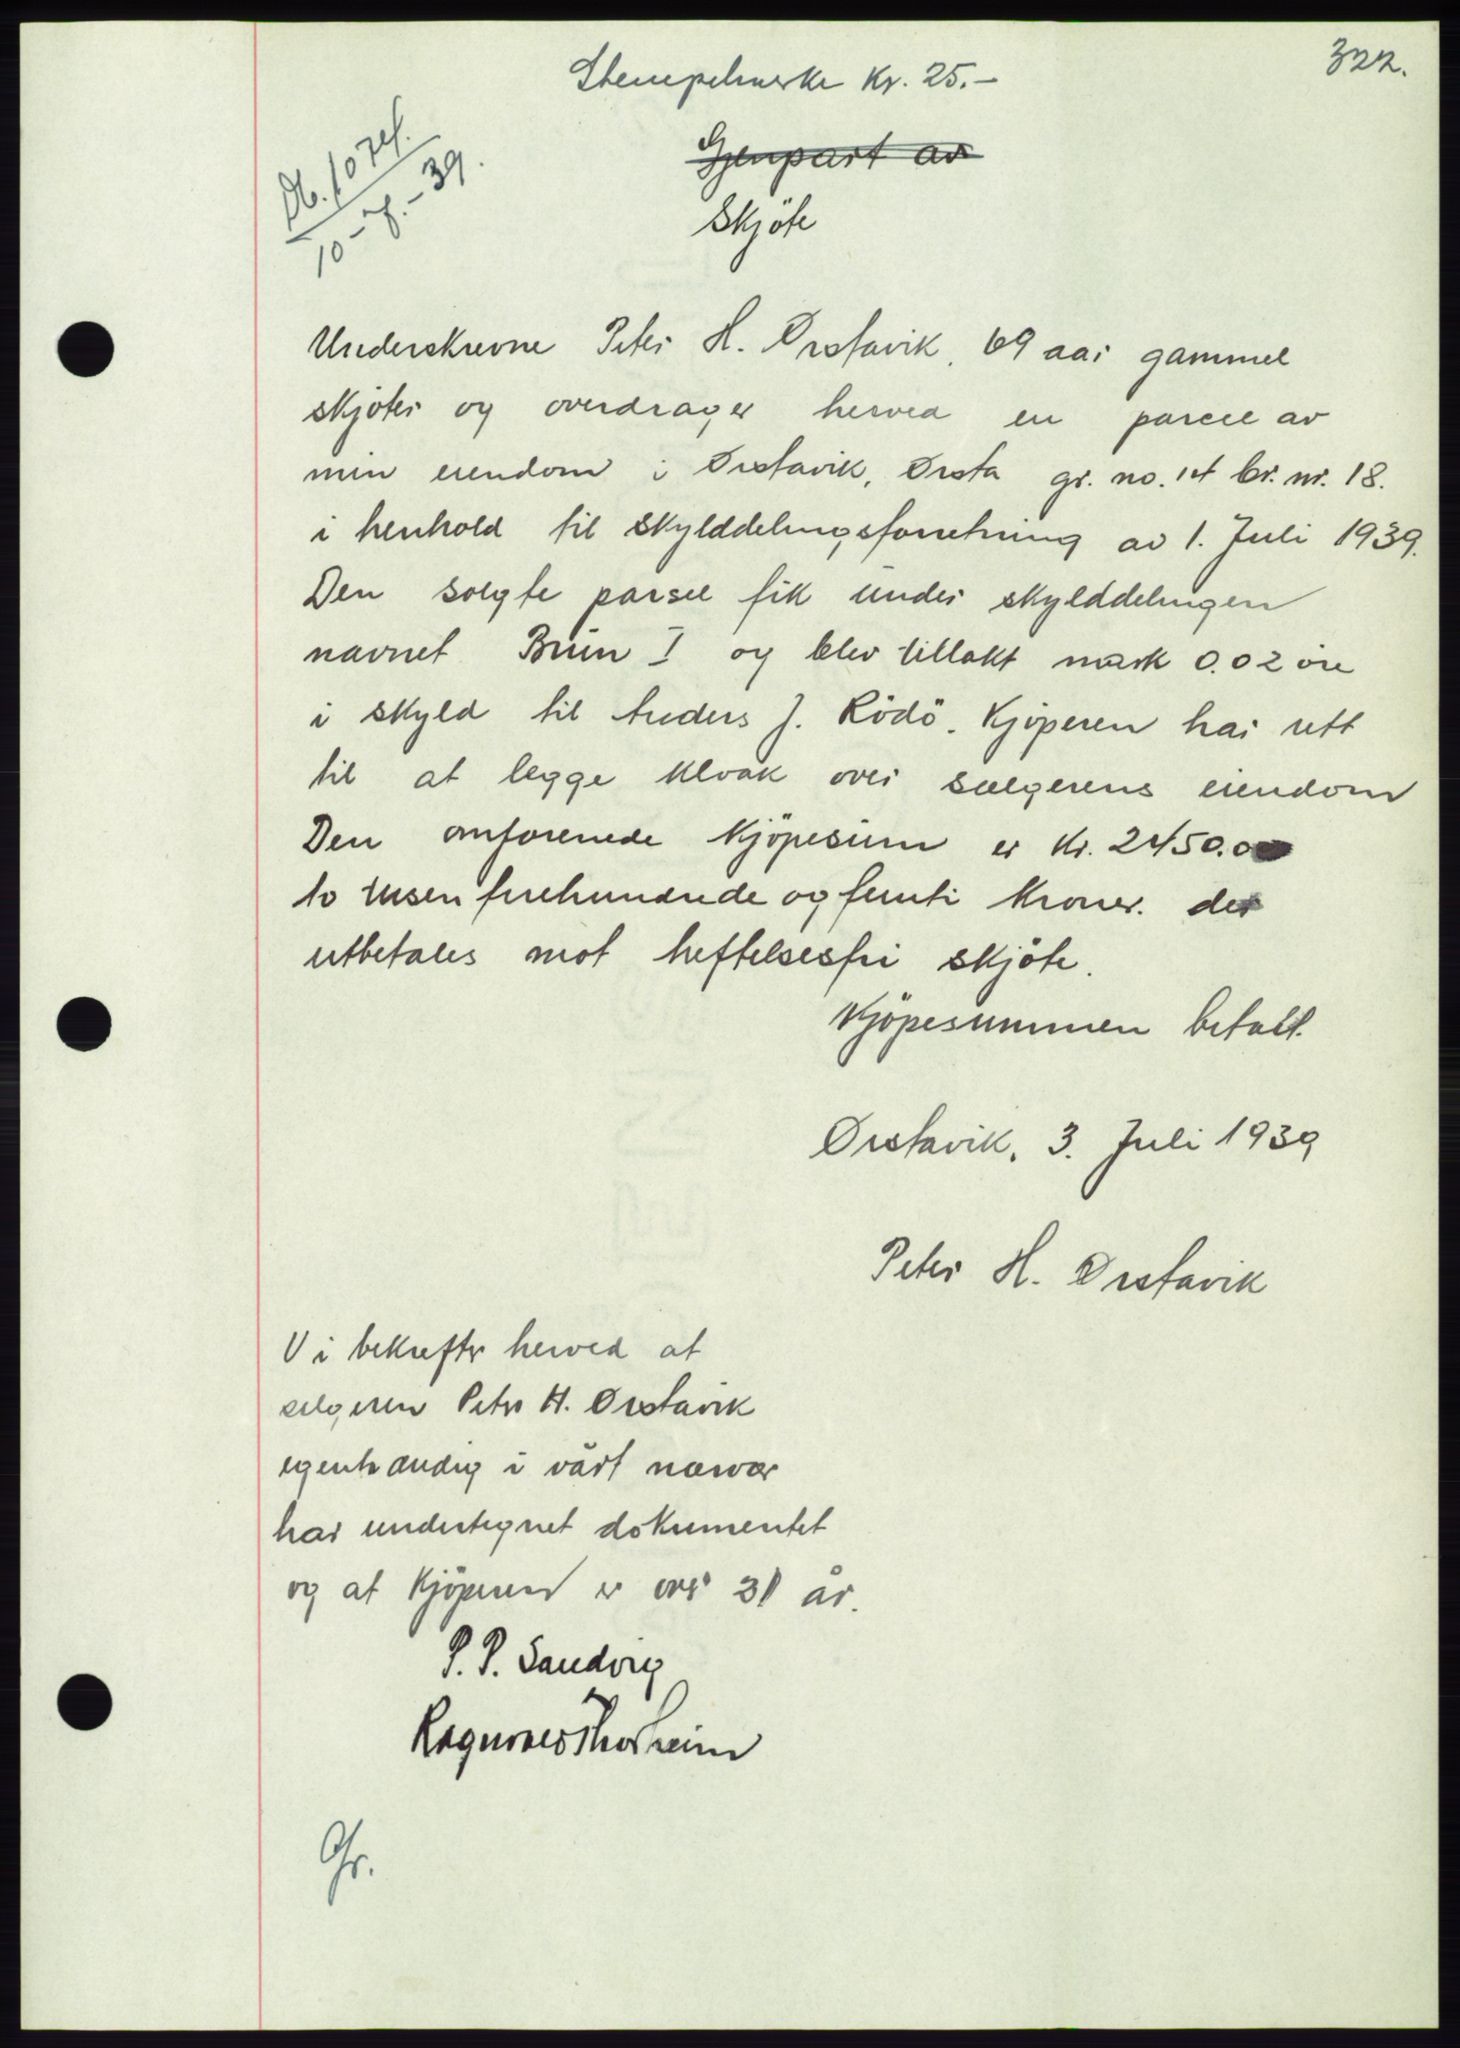 322.
Stempelmerke Kr. 25.-
Db. 1074.
10-7.-39.
Gjenpart av
Skjöte
Underskrevne Peter H. Ørstavik, 69 aar gammel
skjöter og overdrager herved en parcel av
min eiendom i Ørstavik, Ørsta gr. no. 14 br. nr. 18.
i henhold til skylddelingsforretning av 1. Juli 1939.
Den solgte parsel fik under skylddelingen
navnet Brun I og blev tillakt mark 0.02 öre
i skyld til Anders J. Rödö. Kjöperen har rett
til at legge kloak over sælgerens eiendom
Den omforenede kjöpesum er kr. 2450.00
to tusen firehundrede og femti kroner. der
utbetales mot heftelsesfri skjöte.
Kjöpesummen betalt.
Ørstavik, 3. Juli 1939
Peter H. Ørstavik
Vi bekrefter herved at
selgeren Peter H. Ørstavik
egenhændig i vårt nærvær
har undertegnet dokumentet
og at kjöperen er over 21 år.
P. P. Sandvig